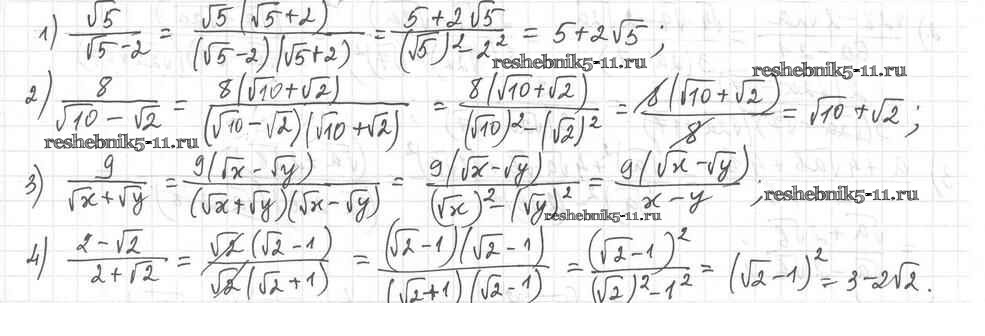 1) √5/(√5-2) = √5(√5+2)/((√5-2)(√5+2)) = (5+2√5)/((√5)²-2²) = 5+2√5;
reshebnik5-11.ru
reshebnik5-11.ru
2) 8/(√10-√2) = 8(√10+√2)/((√10-√2)(√10+√2)) = 8(√10+√2)/((√10)²-(√2)²) = 8(√10+√2)/8 = √10+√2;
reshebnik5-11.ru
3) 9/(√x+√y) = 9(√x-√y)/((√x+√y)(√x-√y)) = 9(√x-√y)/((√x)²-(√y)²) = 9(√x-√y)/(x-y);
reshebnik5-11.ru
reshebnik5-11.ru
4) (2-√2)/(2+√2) = √2(√2-1)/(√2(√2+1)) = (√2-1)(√2-1)/((√2+1)(√2-1)) = (√2-1)²/((√2)²-1²) = (√2-1)² = 3-2√2.